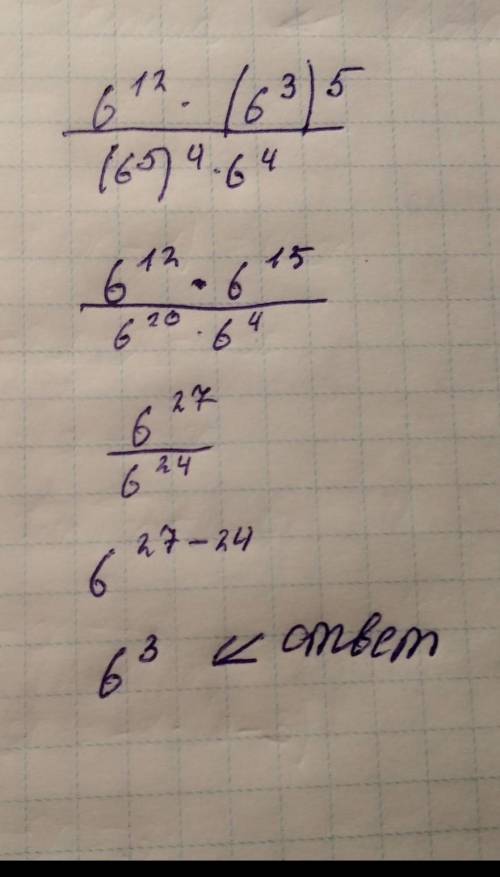 6¹² · (6³)⁵
(6⁵)⁴ · 6⁴
6¹² · 6¹⁵
6²⁰ · 6⁴
6²⁷
6²⁴
6²⁷⁻²⁴
6³ ← ответ